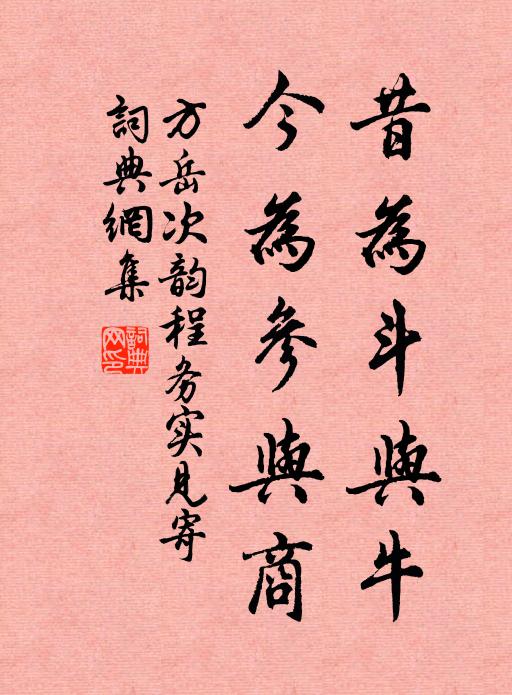 昔為斗與牛
今為參與商
方岳次韵程务实见寄
詞典網集
詞典網印